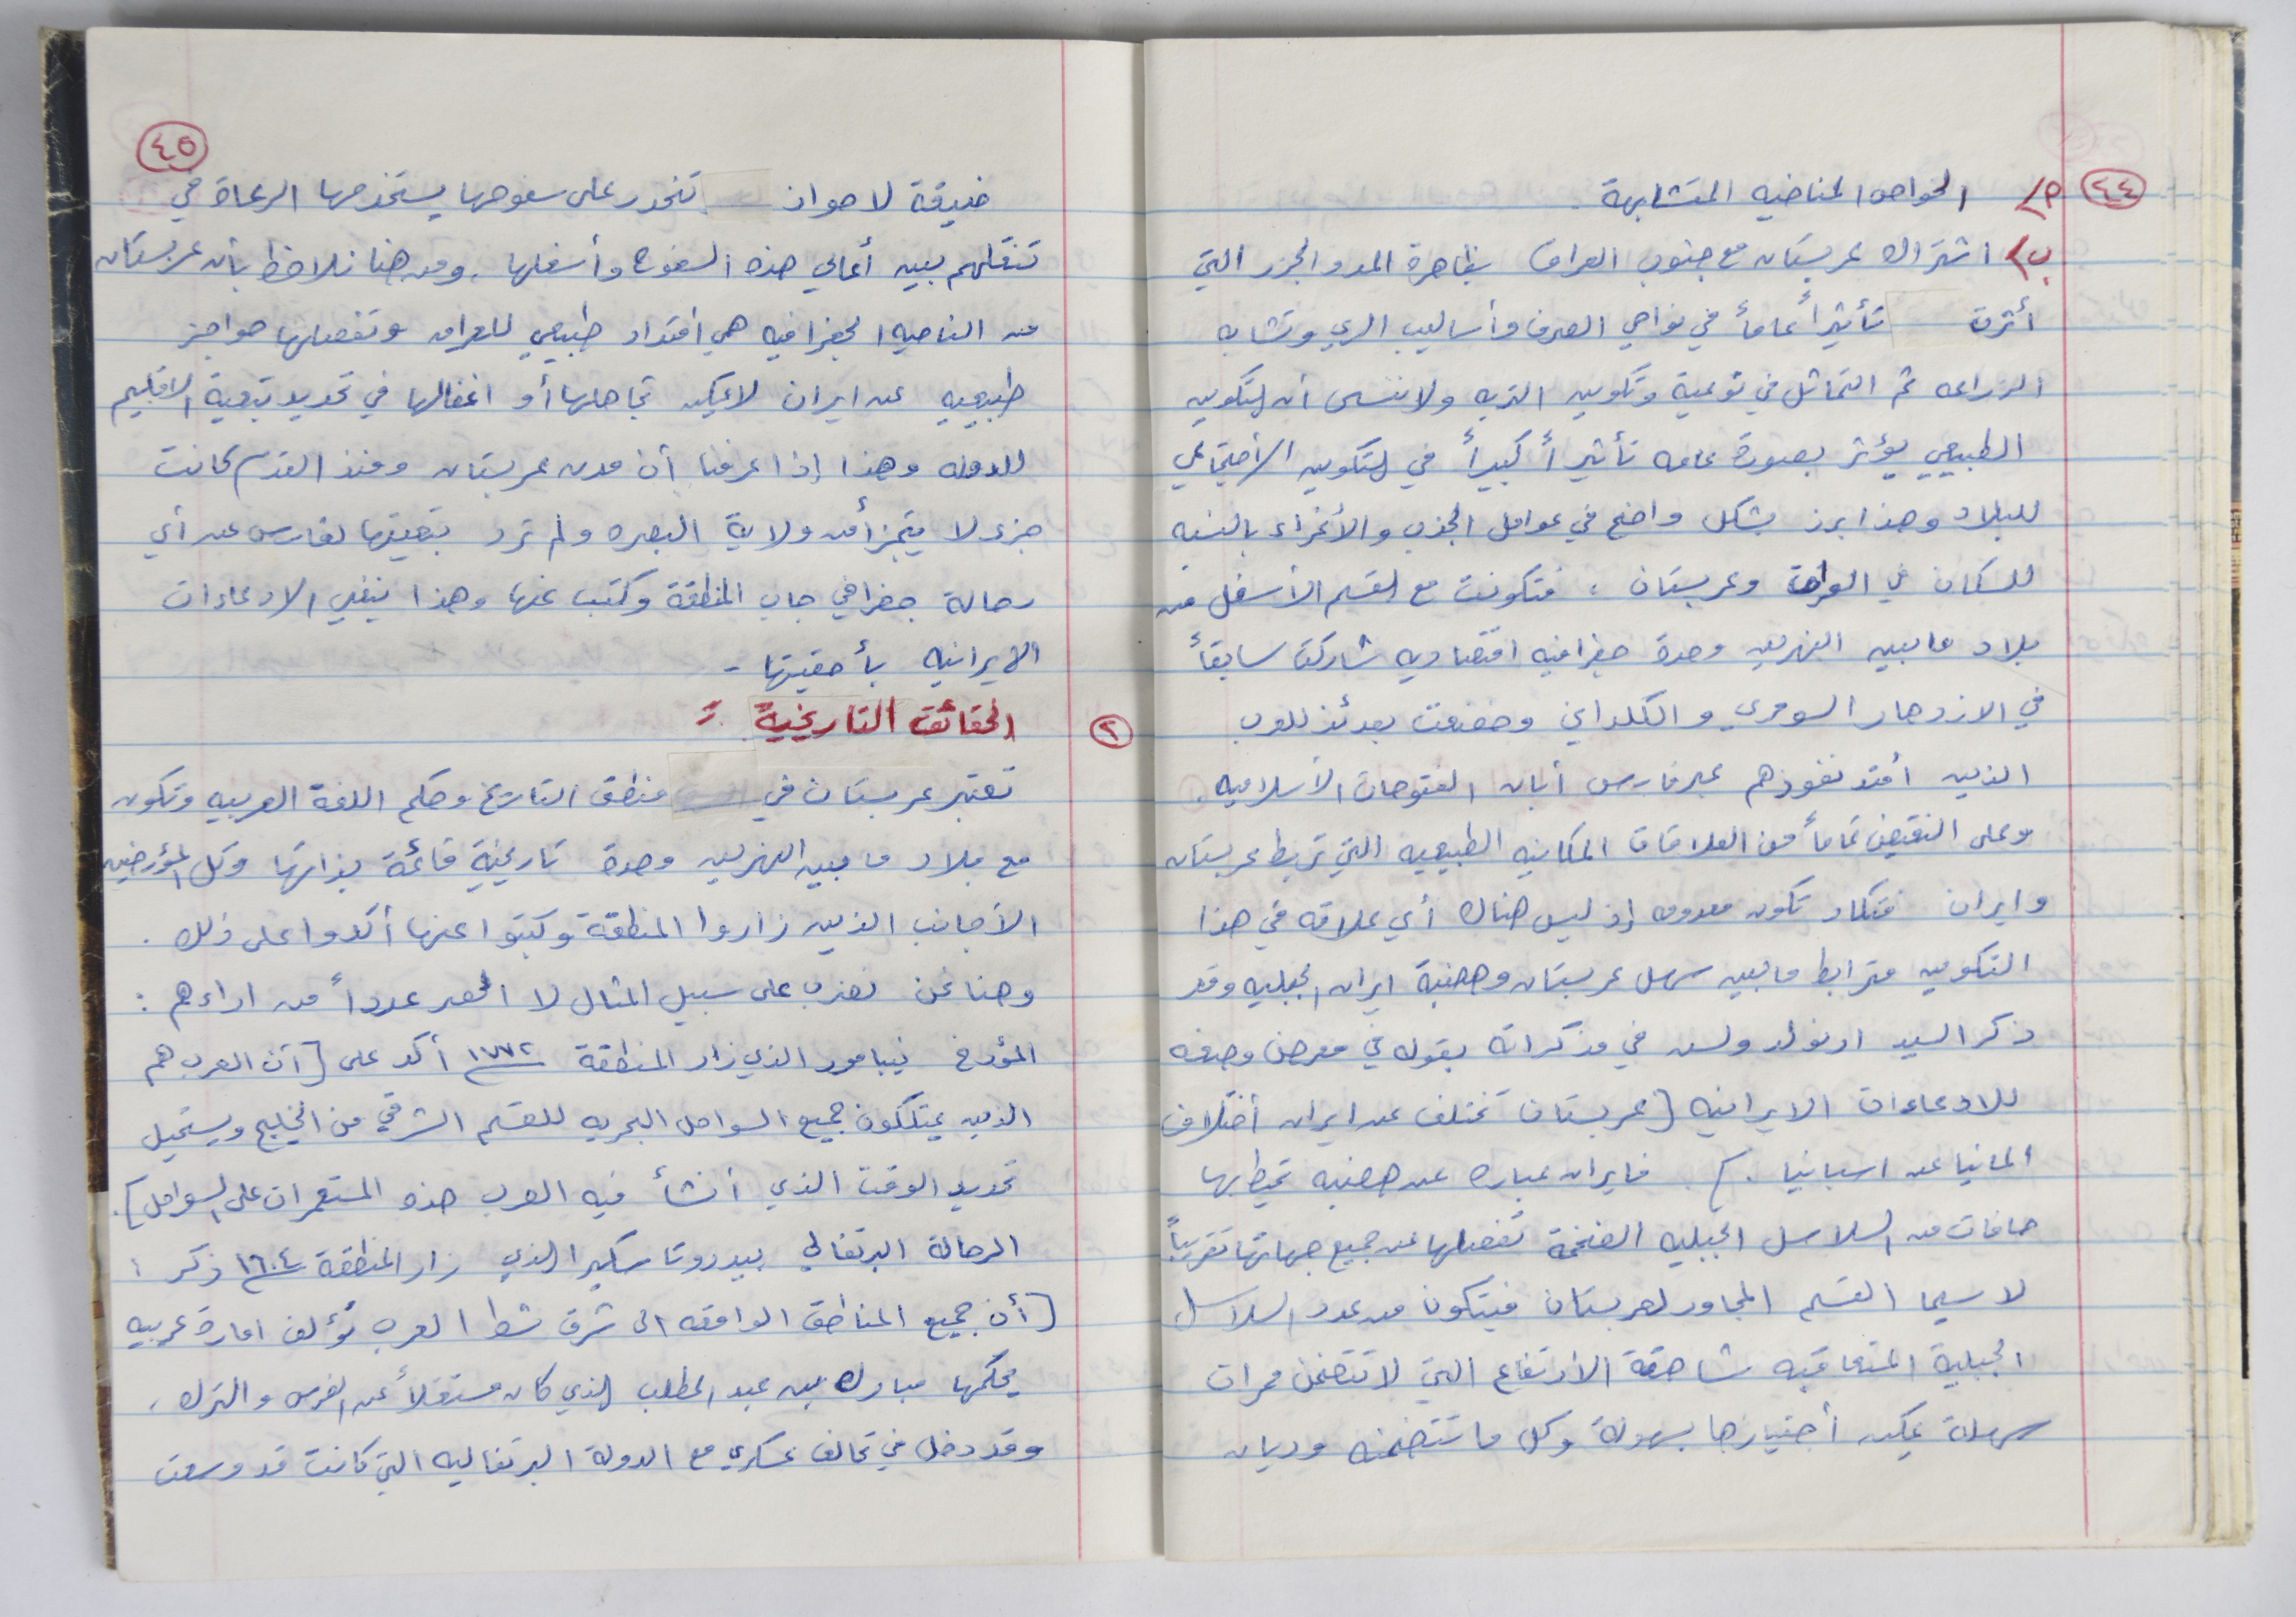 ٤٤
م) الخواص المناخيه المتشابهة
ب) اشتراك عربستان مع جنوب العراق بظاهرة المد والجزر التي
أثرت تأثيراً عاماً في نواحي الصرف وأساليب الري وتشابه
الزراعه ثم التماثل في نوعية وتكوين التربه ولا ننسى أن لتكوين
الطبيعي يؤثر بصورة عامه تأثيراً كبيراً في لتكوين الأجتماعي
للبلاد وهذا برز بشكل واضح في عوامل الجذب والأغراء بالنسبه
للسكان في العراق وعربستان . فتكونت مع القسم الأسفل من
بلاد ما بين النهرين وحدة جغرافيه اقتصاديه شاركت سابقاً
في الازدهار السومري والكلداني وخضعت بعدئذ للعرب
الذين أمتد نفوذهم عبر فارس أبان الفتوحات الأسلاميه .
وعلى النقيض تماماً من العلاقات المكانيه الطبيعيه التي تربط عربستان
وايران فتكاد تكون معدومه إذ ليس هناك أي علاقه في هذا
التكوين مترابط ما بين سهل عربستان وهضبة ايران الجبليه وقد
ذكر السيد ارنولد ولسن في مذكراته بقوله في معرض وصفه
للادعاءات الايرانيه [عربستان تختلف عن ايران أختلاف
المانيا عن اسبانيا .] . فايران عباره عن هضبه تحيط بها
حافات من السلاسل الجبليه الضخمة تفصلها عن جميع جهاتها تقريباً
لا سيما القسم المجاور لعربستان فيتكون من عدد السلاسل
الجبلية المتعاقبه شاهقة الأرتفاع التي لا تتضمن ممرات
سهلة يمكن أجتيازها بسهولة وكل ما تتضمنه وديان
٤٥
ضيقة لا حواز تنحدر على سفوحها يستخدمها الرعاة في
تنقلهم بين أعالي هذه السفوح وأسفلها . ومن هنا نلاحظ بأن عربستان
من الناحيه الجغرافيه هي امتداد طبيعي للعراق وتفصلها حواجز
طبيعيه عن ايران لا يمكن تجاهلها أو اغفالها في تحديد تبعية الاقليم
للدوله وهذا إذا عرفنا أن مدن عربستان ومنذ القدم كانت
جزء لا يتجزأ من ولاية البصره ولم ترد تبعيتها لفارس عن أي
رحالة جغرافي جاب المنطقة وكتب عنها وهذا ينفي الادعاءات
الايرانيه بأحقيتها -
٢ الحقائق التاريخية :
تعتبر عربستان في منطق التاريخ وحكم اللغة العربيه وتكون
مع بلاد ما بين النهرين وحدة تاريخية قائمة بذاتها وكل المؤرخين
الأجانب الذين زاروا المنطقة وكتبوا عنها أكدوا على ذلك .
وهنا نحن نضرب على سبيل المثال لا الحصر عدداً من اراءهم :
المؤرخ نيبامور الذي زار المنطقة ١٧٧٢ أكد على [أن العرب هم
الذين يمتلكون جميع السواحل البحريه للقسم الشرقي من الخليج ويستحيل
تحديد الوقت الذي أنشأ فيه العرب هذه المستعمرات على السواحل].
الرحالة البرتغالي بيدروتاسكيرا الذي زار المنطقة ١٦٠٤ ذكر :
[أن جميع المناطق الواقعه الى شرق شط العرب تؤلف امارة عربيه
يحكمها مبارك بن عبد المطلب الذي كان مستقلاً عن الفرس والترك ،
وقد دخل في تحالف عسكري مع الدولة البرتغاليه التي كانت قد وسعت